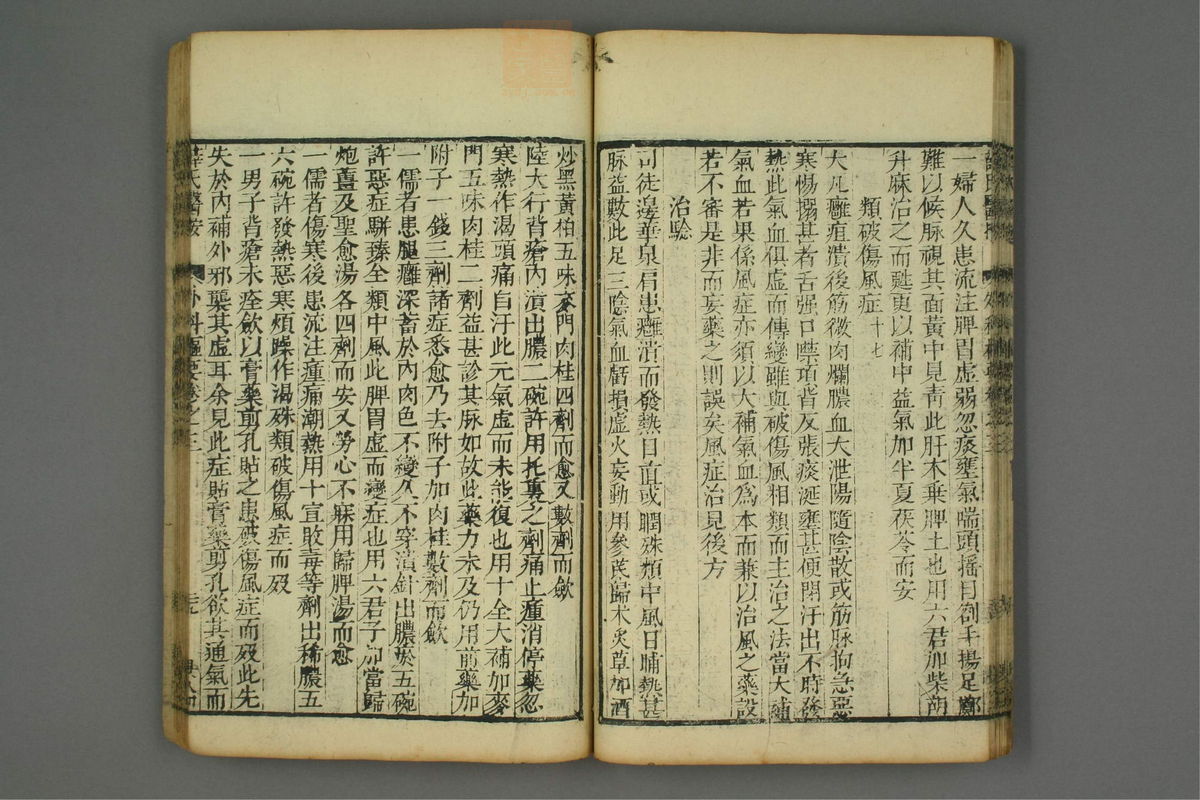 一婦人久患流注脾胃虛弱忽痰壅氣喘頭搖目劄手揚足擲
難以候脉視其面黃中見青此肝木乗脾土也用六君加柴胡
升麻治之而甦更以補中益氣加半夏茯苓而安
類破傷風症十七
大凡癰疽潰後筋糜肉爛膿血大泄陽隨陰散或筋脉拘急惡
寒惕搦甚者舌强口噤項背反張痰涎壅甚便閉汗出不時發
熱此氣血俱虛而傳變雖與破傷風相類而主治之法當大補
氣血若果係風症亦須以大補氣血爲本而兼以治風之藥設
若不審是非而妄藥之則誤矣風症治見後方
治驗
司徒邊華泉肩患癰潰而發熱目直或瞤殊類中風日晡熱甚
脉益數此足三陰氣血虧損虛火妄動用參芪歸术炙草加酒
炒黑黃柏五味麥門肉桂四劑而愈又數劑而歛
陸大行背瘡內潰出膿二碗許用托裏之劑痛止腫消停藥忽
寒熱作渴頭痛自汗此元氣虛而未能復也用十全大補加麥
門五味肉桂二劑益甚診其脉如故此藥力未及仍用前藥加
附子一錢三劑諸症悉愈乃去附子加肉桂數劑而歛
一儒者患腿癰深蓄於內肉色不變久不穿潰針出膿於五碗
許惡症駢臻全類中風此脾胃虛而變症也用六君子加當歸
炮薑及聖愈湯各四劑而安又勞心不寐用歸脾湯而愈
一儒者傷寒後患流注腫痛潮熱用十宣敗毒等劑出稀膿五
六碗許發熱惡寒煩躁作渴殊類破傷風症而歿
一男子背瘡未痊歛以膏藥剪孔貼之患破傷風症而歿此先
失於內補外邪襲其虛耳余見此症貼膏藥剪孔欲其通氣而
薛氏醫按　外科樞要卷之三